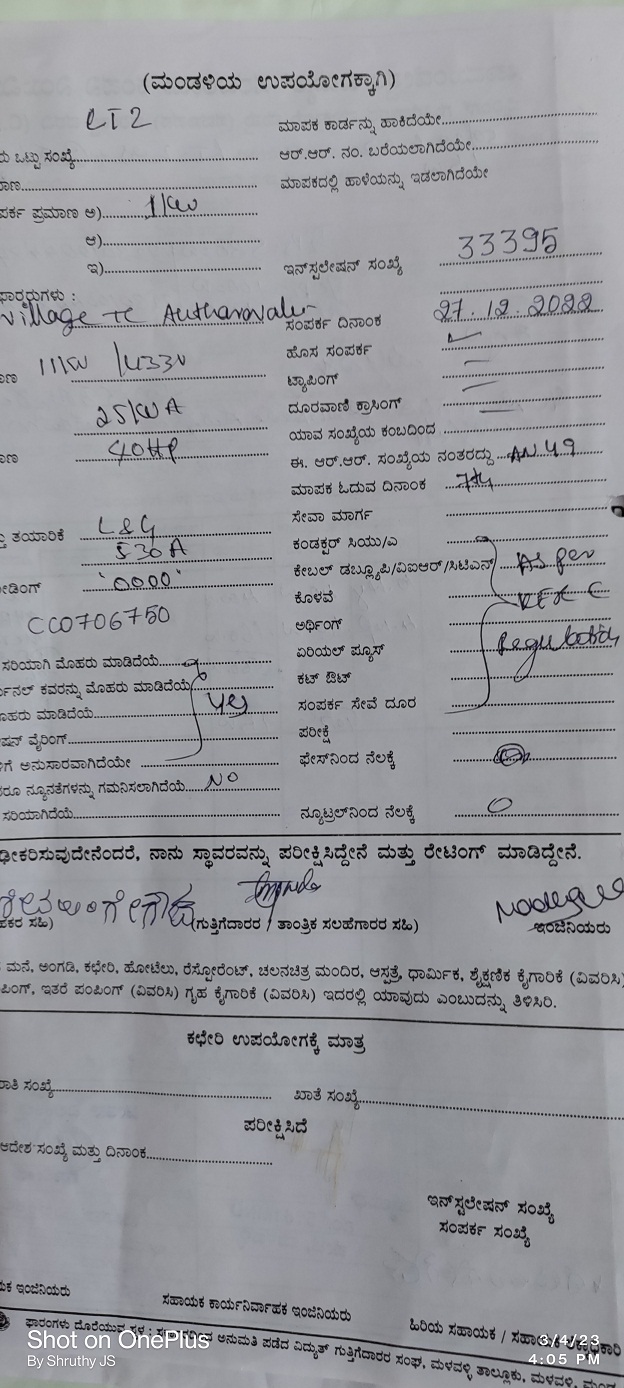 (ಮಂಡಳಿಯ ಉಪಯೋಗಕ್ಕಾಗಿ)
LT2 ಮಾಪಕ ಕಾರ್ಡನ್ನು ಹಾಕಿದೆಯೇ
ಒಟ್ಟು ಸಂಖ್ಯೆ ಆರ್.ಆರ್. ನಂ. ಬರೆಯಲಾಗಿದೆಯೇ
ಮಾಪಕದಲ್ಲಿ ಹಾಳೆಯನ್ನು ಇಡಲಾಗಿದೆಯೇ
ಪ್ರಮಾಣ ಅ) 1kw
ಆ)
ಇ) ಇನ್‌ಸ್ಟಲೇಷನ್ ಸಂಖ್ಯೆ 33395
Village TC ಸಂಪರ್ಕ ದಿನಾಂಕ 27.12.2022
ಹೊಸ ಸಂಪರ್ಕ
11kv/433v ಟ್ಯಾಪಿಂಗ್
25kVA ದೂರವಾಣಿ ಕ್ರಾಸಿಂಗ್
ಯಾವ ಸಂಖ್ಯೆಯ ಕಂಬದಿಂದ
40HP ಈ. ಆರ್.ಆರ್. ಸಂಖ್ಯೆಯ ನಂತರದ್ದು AN 49
ಮಾಪಕ ಓದುವ ದಿನಾಂಕ 7th
ಸೇವಾ ಮಾರ್ಗ
ತಯಾರಿಕೆ L&G ಕಂಡಕ್ಟರ್ ಸಿಯು/ಎ
5-30A ಕೇಬಲ್ ಡಬ್ಲ್ಯೂಪಿ/ವಿಐಆರ್/ಸಿಟಿಎಸ್ As per
'0000' ಕೊಳವೆ
CC0706750 ಅರ್ಥಿಂಗ್
ಏರಿಯಲ್ ಫ್ಯೂಸ್ Regulation
ಸರಿಯಾಗಿ ಮೊಹರು ಮಾಡಿದೆಯೆ ಕಟ್ ಔಟ್
ಕವರನ್ನು ಮೊಹರು ಮಾಡಿದೆಯೆ ಸಂಪರ್ಕ ಸೇವೆ ದೂರ
ಮಾಡಿದೆಯೆ yes
ವೈರಿಂಗ್ ಪರೀಕ್ಷೆ
ಅನುಸಾರವಾಗಿದೆಯೇ ಫೇಸ್‌ನಿಂದ ನೆಲಕ್ಕೆ
ನ್ಯೂನತೆಗಳನ್ನು ಗಮನಿಸಲಾಗಿದೆಯೆ NO
ಸರಿಯಾಗಿದೆಯೆ ನ್ಯೂಟ್ರಲ್‌ನಿಂದ ನೆಲಕ್ಕೆ 0
ನಾನು ಸ್ಥಾವರವನ್ನು ಪರೀಕ್ಷಿಸಿದ್ದೇನೆ ಮತ್ತು ರೇಟಿಂಗ್ ಮಾಡಿದ್ದೇನೆ.
ಸಹಿ) (ಗುತ್ತಿಗೆದಾರರ / ತಾಂತ್ರಿಕ ಸಲಹೆಗಾರರ ಸಹಿ) ಇಂಜಿನಿಯರು
ಮನೆ, ಅಂಗಡಿ, ಕಛೇರಿ, ಹೋಟೆಲು, ರೆಸ್ಟೋರೆಂಟ್, ಚಲನಚಿತ್ರ ಮಂದಿರ, ಆಸ್ಪತ್ರೆ, ಧಾರ್ಮಿಕ, ಶೈಕ್ಷಣಿಕ ಕೈಗಾರಿಕೆ (ವಿವರಿಸಿ)
ಇತರೆ ಪಂಪಿಂಗ್ (ವಿವರಿಸಿ) ಗೃಹ ಕೈಗಾರಿಕೆ (ವಿವರಿಸಿ) ಇದರಲ್ಲಿ ಯಾವುದು ಎಂಬುದನ್ನು ತಿಳಿಸಿರಿ.
ಕಛೇರಿ ಉಪಯೋಗಕ್ಕೆ ಮಾತ್ರ
ಸಂಖ್ಯೆ ಖಾತೆ ಸಂಖ್ಯೆ
ಪರೀಕ್ಷಿಸಿದೆ
ಆದೇಶ ಸಂಖ್ಯೆ ಮತ್ತು ದಿನಾಂಕ
ಇನ್‌ಸ್ಟಲೇಷನ್ ಸಂಖ್ಯೆ
ಸಂಪರ್ಕ ಸಂಖ್ಯೆ
ಇಂಜಿನಿಯರು ಸಹಾಯಕ ಕಾರ್ಯನಿರ್ವಾಹಕ ಇಂಜಿನಿಯರು ಹಿರಿಯ ಸಹಾಯಕ / ಸಹಾಯಕ
ಫಾರಂಗಳು ದೊರೆಯುವ ಸ್ಥಳ : ಅನುಮತಿ ಪಡೆದ ವಿದ್ಯುತ್ ಗುತ್ತಿಗೆದಾರರ ಸಂಘ, ಮಳವಳ್ಳಿ ತಾಲ್ಲೂಕು, ಮಳವಳ್ಳಿ,
Shot on OnePlus
By Shruthy JS
3/4/23
4:05 PM